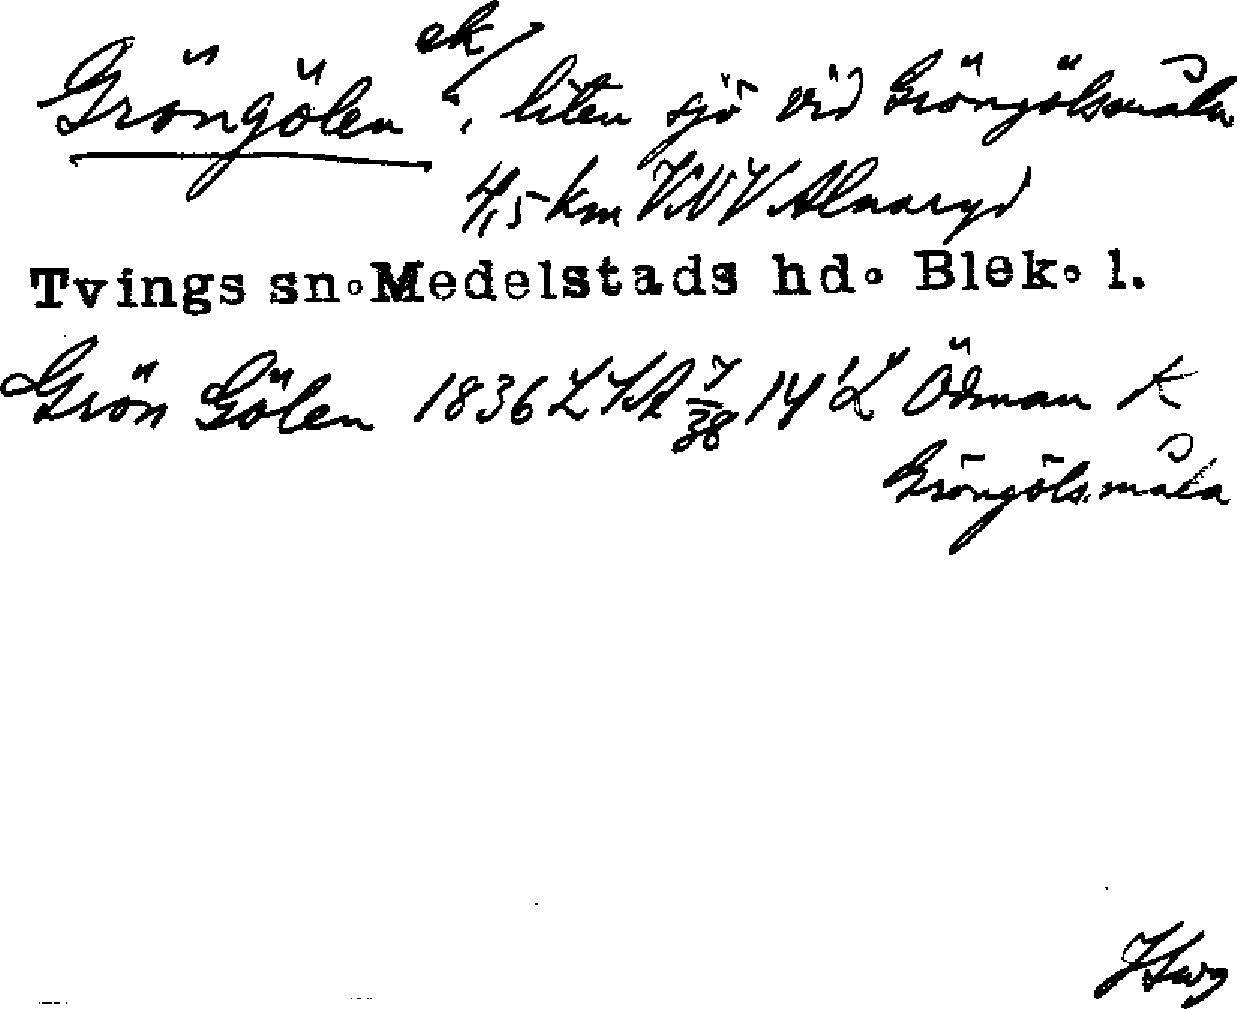 Gröngölen ek/, liten sjö vid Gröngölsmåla
4,5 km VNV Alnaryd
Tvings sn. Medelstads hd. Blek. l.
Grön Gölen 1836 LSA 7/38 14' L Ödman K
Gröngölsmåla